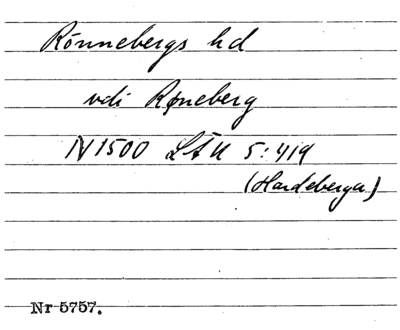 Rönnebergs hd
vdi Røneberg
N1500 LÅU 5:419
(Hardeberga)
Nr 5757.